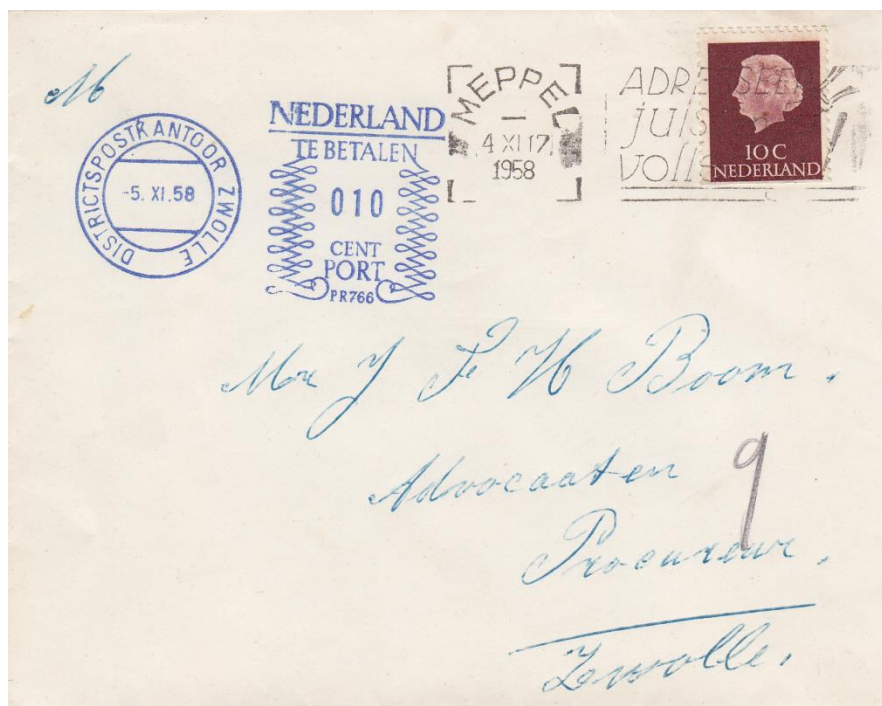 M
DISTRICTSPOSTKANTOOR ZWOLLE
-5. XI.58
NEDERLAND
TE BETALEN
010
CENT
PORT
PR766
MEPPEL
4 XI 17
1958
ADRESSEER
juis
volls
10 C
NEDERLAND
Mr J F H Boom.
Advocaat en
9
Procureur.
Zwolle.